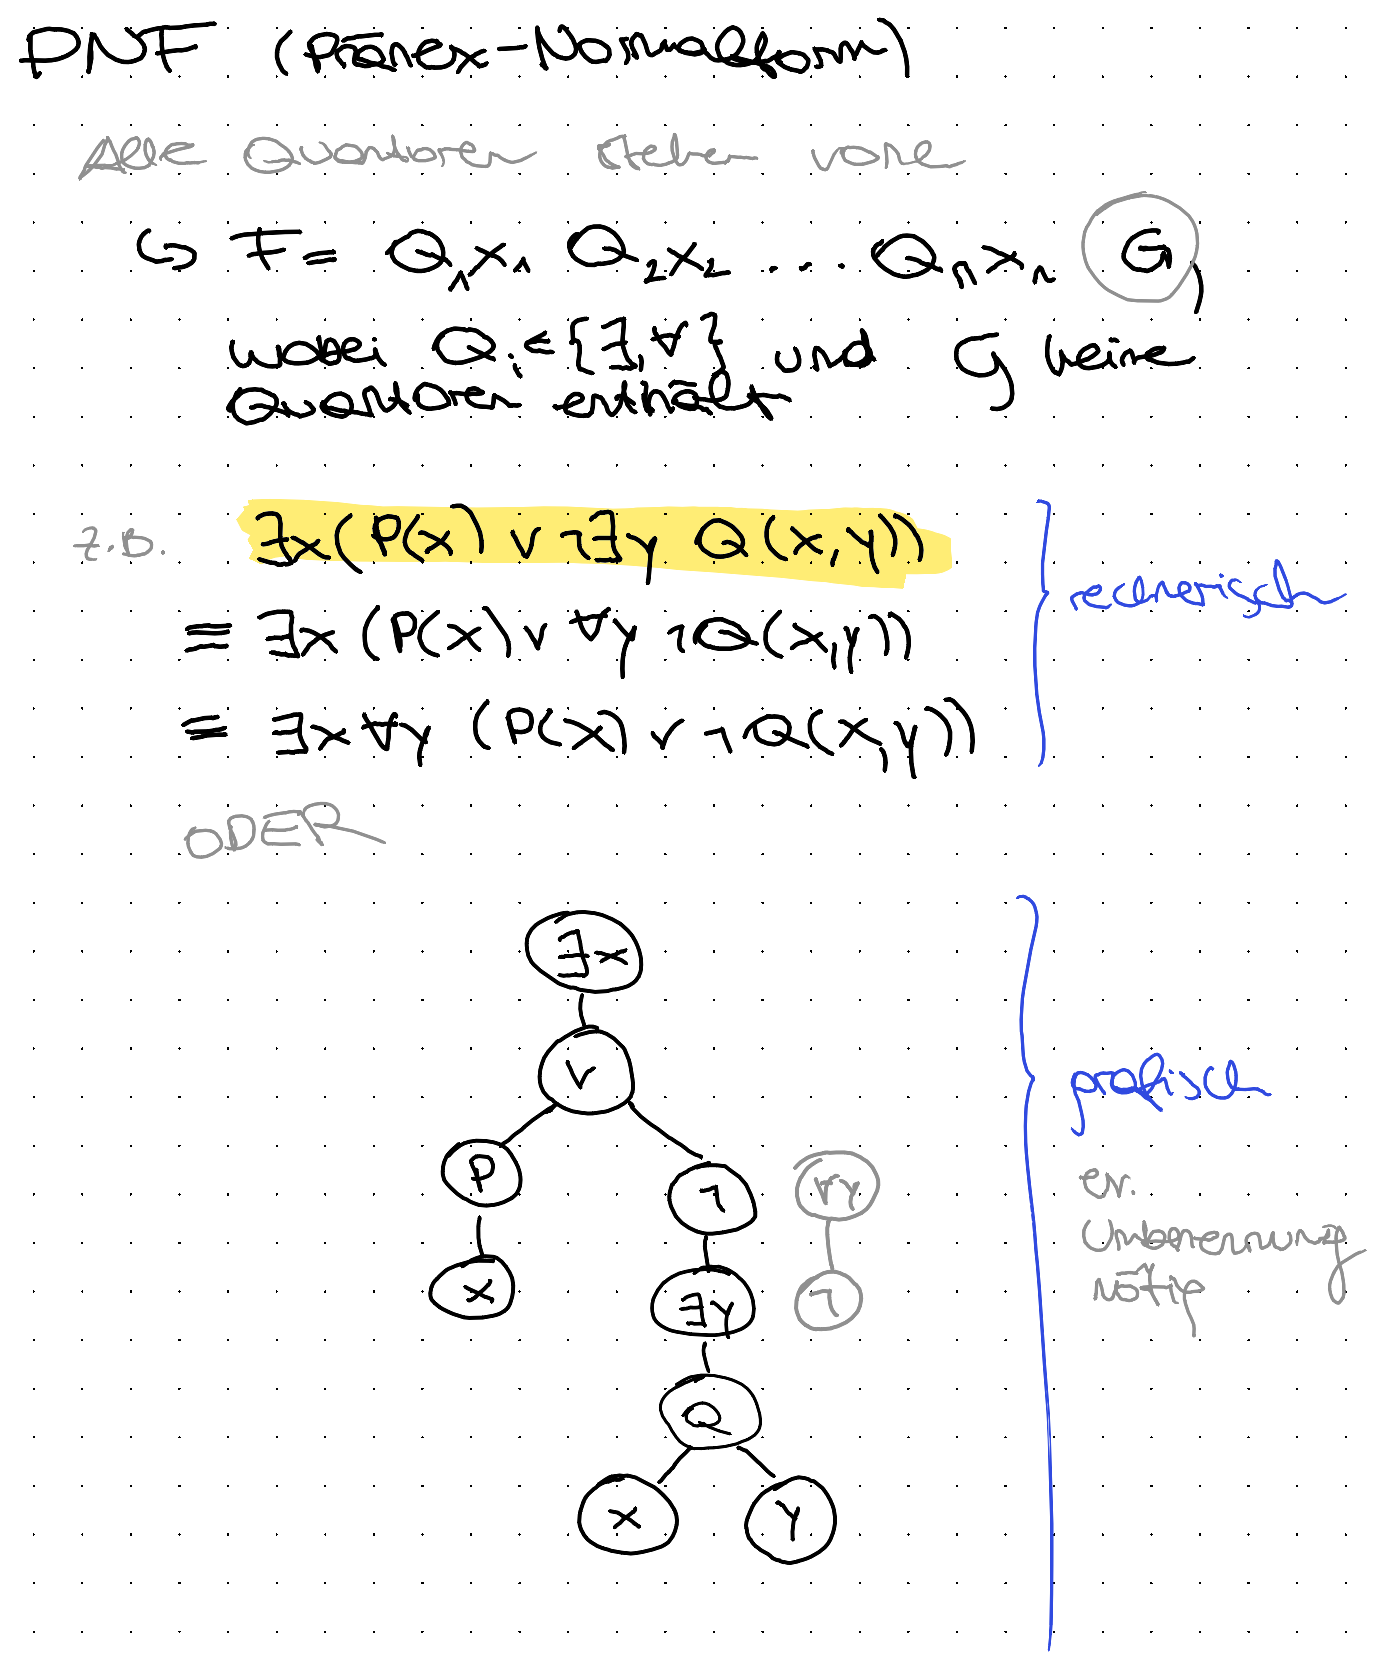 PNF (Pränex-Normalform)
Alle Quantoren stehen vorne
↪ F = Q₁x₁ Q₂x₂ ... Qₙxₙ G,
wobei Qᵢ ∈ {∃,∀} und G keine
Quantoren enthält
z.B. ∃x(P(x) ∨ ¬∃y Q(x,y))
≡ ∃x (P(x) ∨ ∀y ¬Q(x,y))
≡ ∃x∀y (P(x) ∨ ¬Q(x,y))
rechnerisch
ODER
∃x
∨
P ¬ ∀y
x ∃y ¬
Q
x y
grafisch
ev.
Umbenennung
nötig